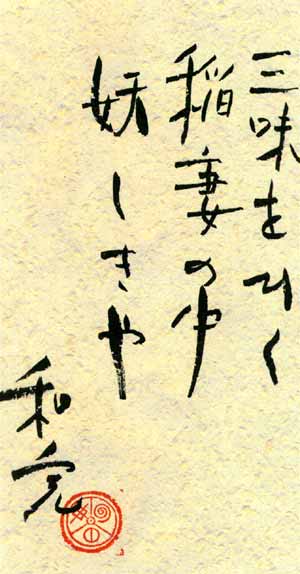 三味をひく
稲妻の中
妖しきや
和完